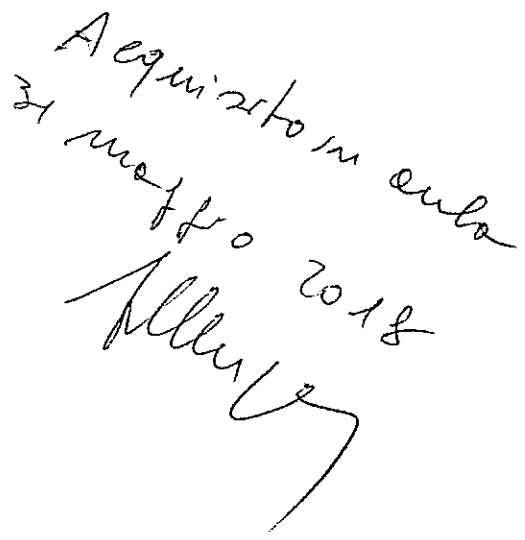 Acquisito in aula
31 maggio 2018